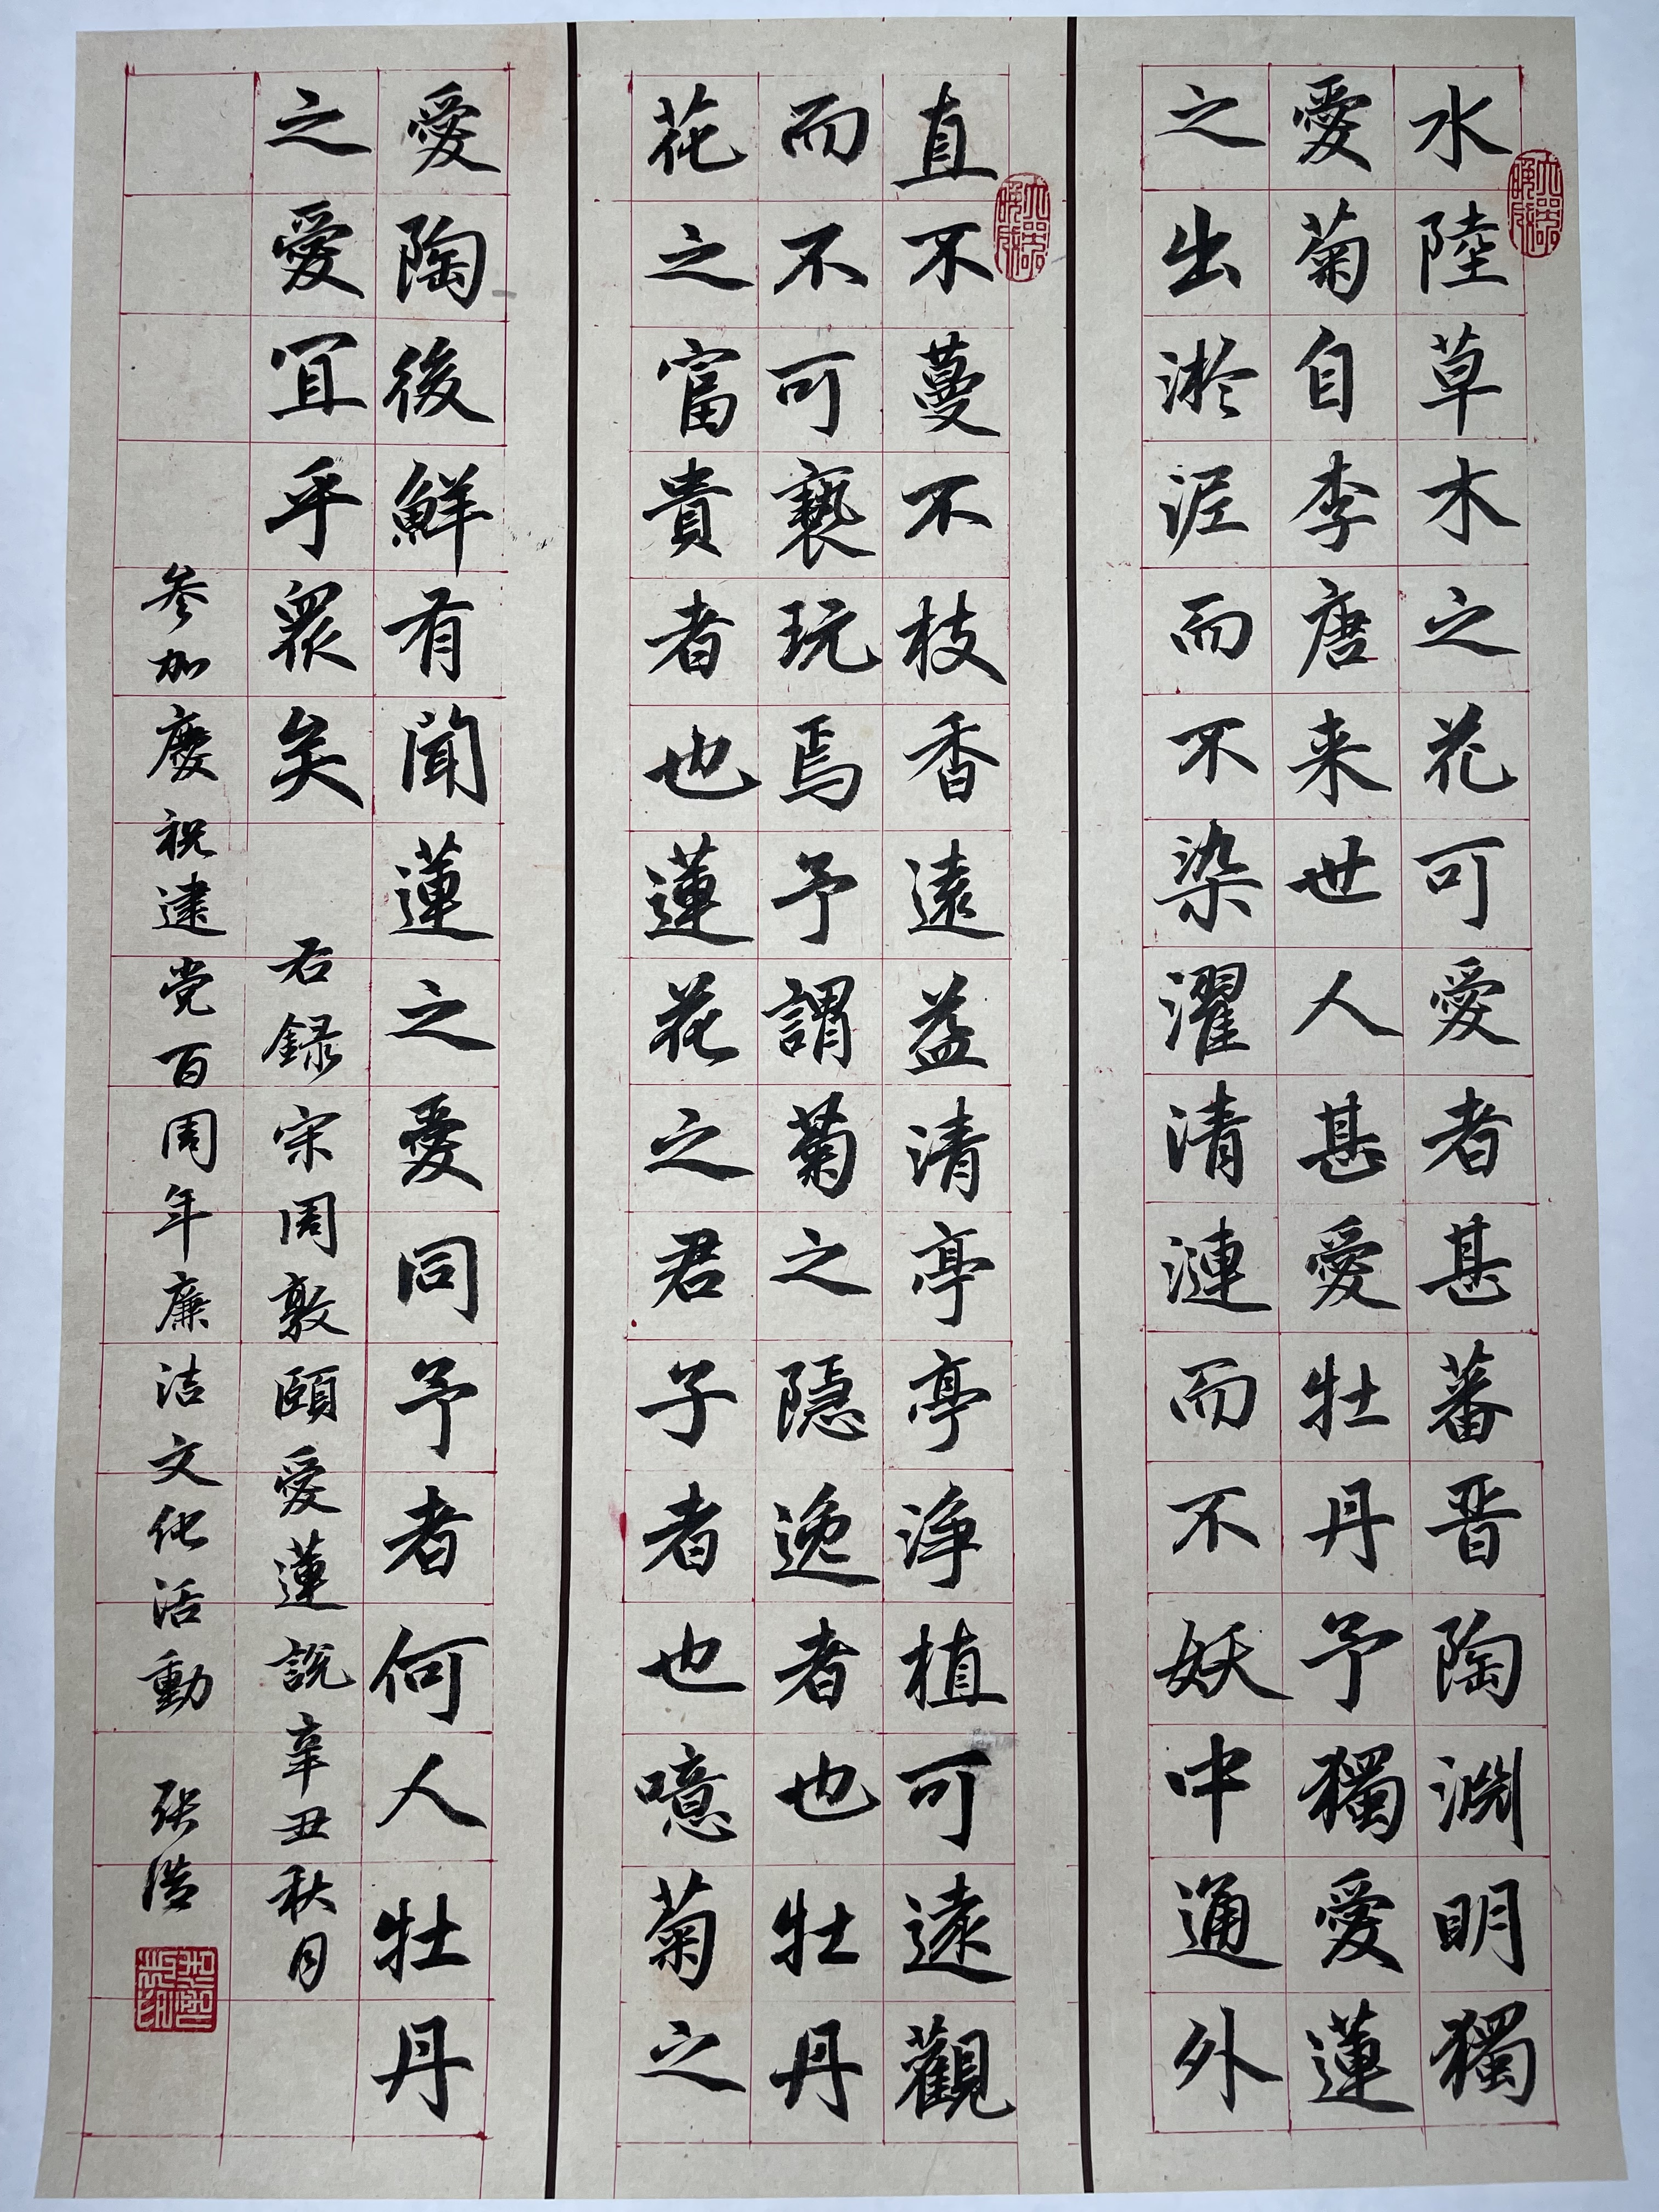 水陸草木之花可愛者甚蕃晋陶淵明獨
愛菊自李唐来世人甚愛牡丹予獨愛蓮
之出淤泥而不染濯清漣而不妖中通外
直不蔓不枝香遠益清亭亭浄植可遠觀
而不可褻玩焉予謂菊之隱逸者也牡丹
花之富貴者也蓮花之君子者也噫菊之
愛陶後鮮有聞蓮之愛同予者何人牡丹
之愛宜乎衆矣 右録宋周敦頤愛蓮説辛丑秋月
参加慶祝建党百周年廉洁文化活動 张浩
大器晚成
大器晚成